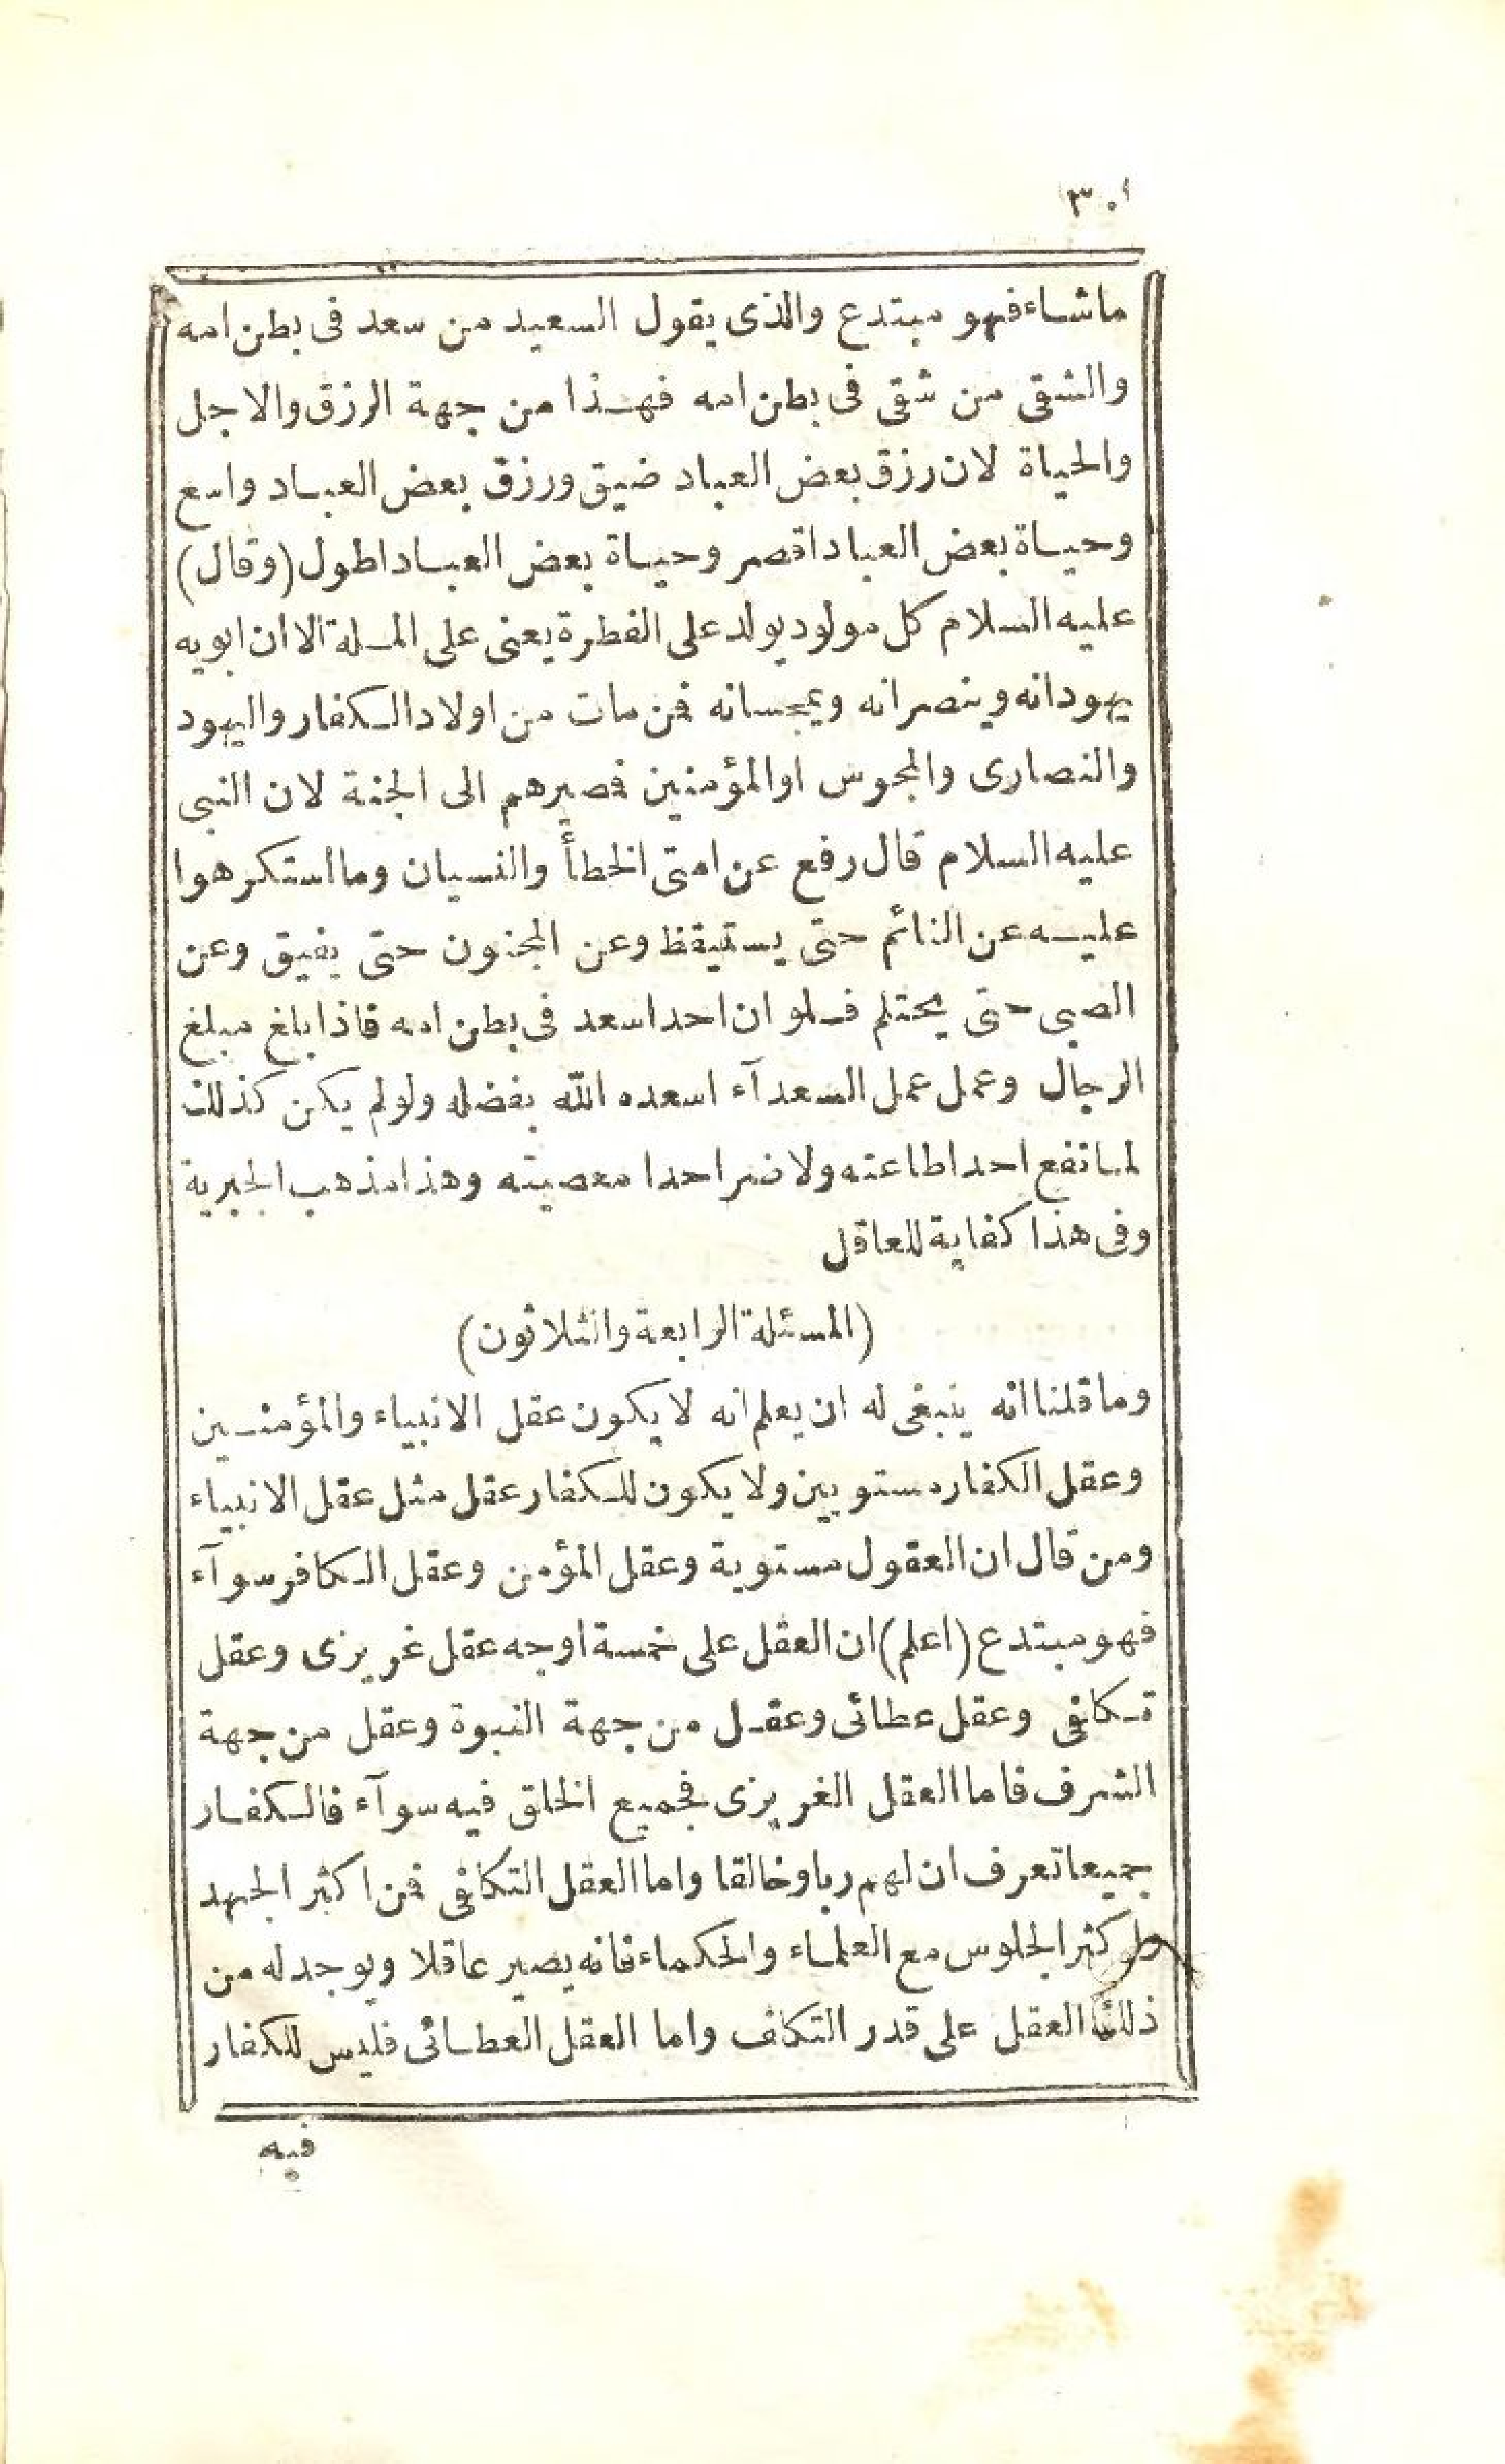 ٣٠
ماشاء فهو مبتدع والذى يقول السعيد من سعد فى بطن امه
والشقى من شقى فى بطن امه فهذا من جهة الرزق والاجل
والحياة لان رزق بعض العباد ضيق ورزق بعض العباد واسع
وحياة بعض العباد اقصر وحياة بعض العباد اطول (وقال)
عليه السلام كل مولود يولد على الفطرة يعنى على الملة الا ان ابويه
يهودانه وينصرانه ويمجسانه فمن مات من اولاد الكفار واليهود
والنصارى والمجوس او المؤمنين فصيرهم الى الجنة لان النبى
عليه السلام قال رفع عن امتى الخطأ والنسيان وما استكرهوا
عليه عن النائم حتى يستيقظ وعن المجنون حتى يفيق وعن
الصبى حتى يحتلم فلو ان احدا سعد فى بطن امه فاذا بلغ مبلغ
الرجال وعمل عمل السعدآء اسعده الله بفضله ولو لم يكن كذلك
لما نفع احدا طاعته ولا ضر احدا معصيته وهذا مذهب الجبرية
وفى هذا كفاية للعاقل
(المسئلة الرابعة والثلاثون)
وما قلنا انه ينبغى له ان يعلم انه لا يكون عقل الانبياء والمؤمنين
وعقل الكفار مستويين ولا يكون للكفار عقل مثل عقل الانبياء
ومن قال ان العقول مستوية وعقل المؤمن وعقل الكافر سوآء
فهو مبتدع (اعلم) ان العقل على خمسة اوجه عقل غريزى وعقل
تكلفى وعقل عطائى وعقل من جهة النبوة وعقل من جهة
الشرف فاما العقل الغريزى فجميع الخلق فيه سوآء فالكفار
جميعا تعرف ان لهم ربا وخالقا واما العقل التكلفى فمن اكثر الجهد
كثر الجلوس مع العلماء والحكماء فانه يصير عاقلا ويوجد له من
ذلك العقل على قدر التكلف واما العقل العطائى فليس للكفار
فيه